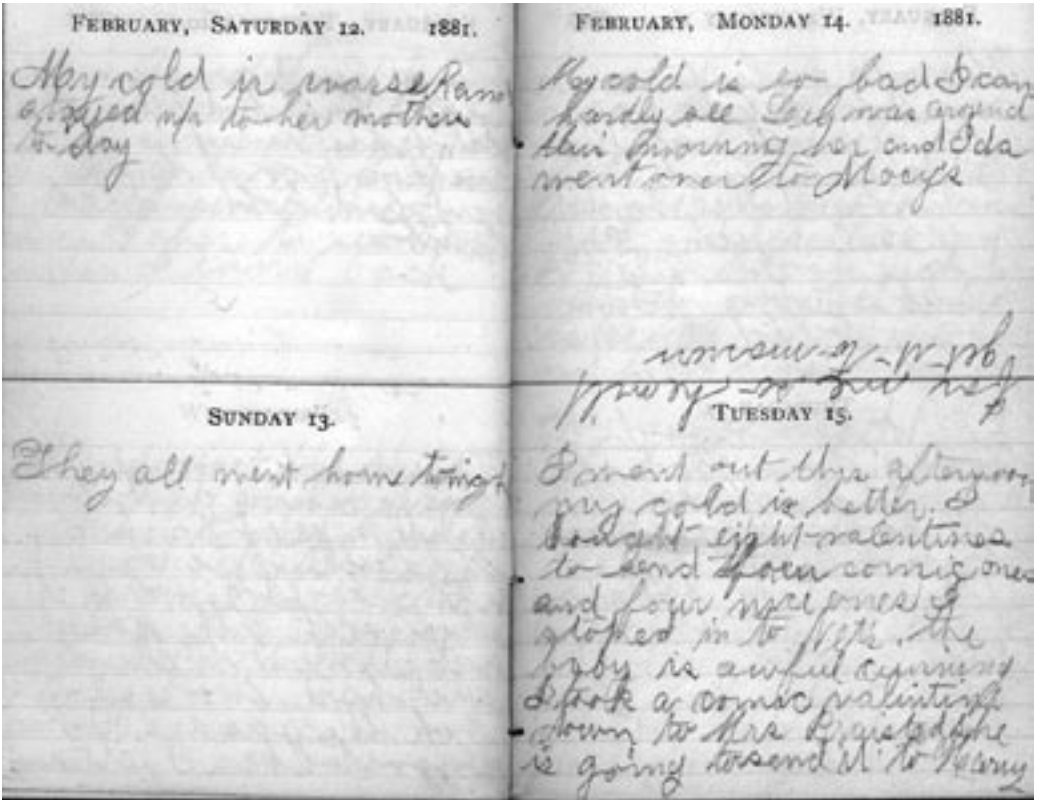 FEBRUARY, SATURDAY 12. 1881.
My cold is worse
up to her mothers
to day
SUNDAY 13.
They all went home tonigh
FEBRUARY, MONDAY 14. 1881.
My cold is so bad I can
hardly was around
this morning her and Ida
went over to Macy's
TUESDAY 15.
I went out this afternoon
my cold is better. I
bought eight valentines
to send four comic ones
and four nice ones I
stoped in to the
baby is awful cunning
I took a comic valintine
down to Mrs she
is going to send it to Harry